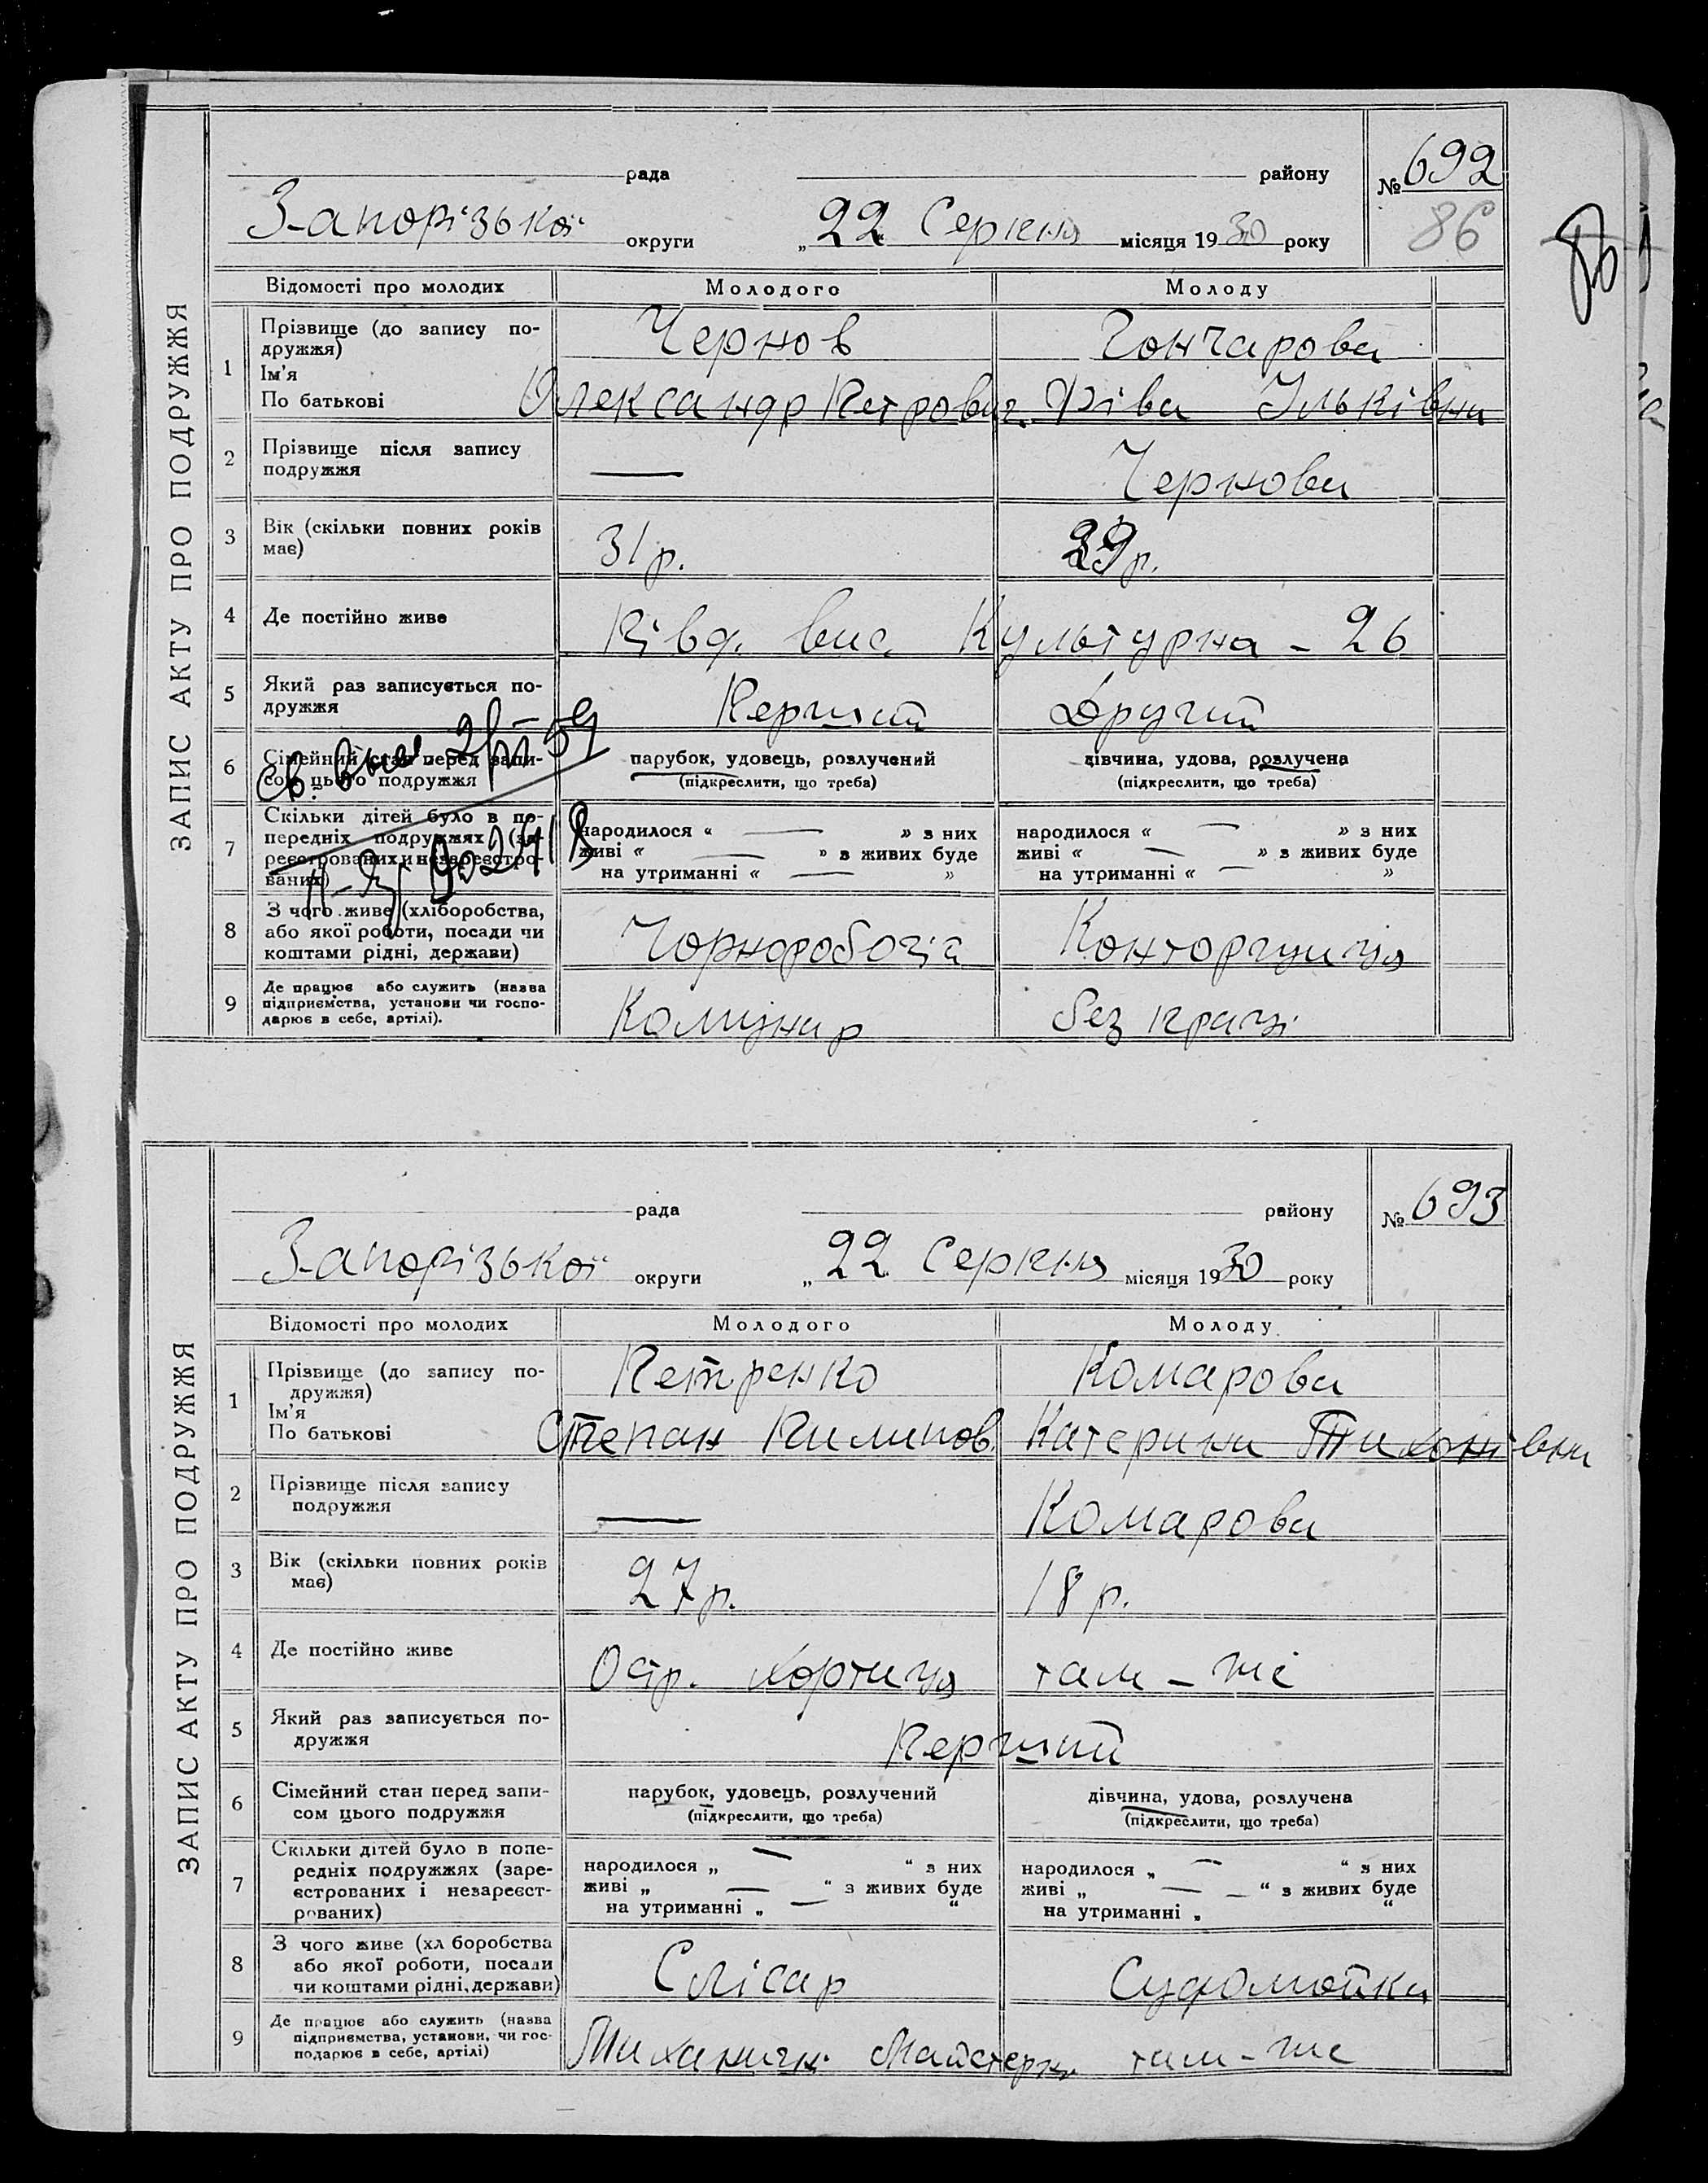 ЗАПИС АКТУ ПРО ПОДРУЖЖЯ
рада району № 692
Запорізької округи „22 Серпня місяця 1930 року 86
Відомості про молодих Молодого Молоду
1 Прізвище (до запису по-
дружжя) Чернов Гончарова
Ім'я
По батькові Олександр Петрович Ріва Ільківна
2 Прізвище після запису
подружжя — Чернова
3 Вік (скільки повних років
має) 31 р. 29 р.
4 Де постійно живе Півд. вис. Культурна – 26
5 Який раз записується по-
дружжя Перший Другий
6 Сімейний стан перед запи-
сом цього подружжя
парубок, удовець, розлучений дівчина, удова, розлучена
(підкреслити, що треба) (підкреслити, що треба)
7 Скільки дітей було в по-
передніх подружжях (за-
реєстрованих и незареєстро-
ваних)
народилося « — » з них народилося « — » з них
живі « — » з живих буде живі « — » з живих буде
на утриманні « — » на утриманні « — »
8 З чого живе (хліборобства,
або якої роботи, посади чи
коштами рідні, держави) Чорноробочий Конторщиця
9 Де працює або служить (назва
підприємства, установи чи госпо-
дарює в себе, артілі). Комунар без праці
ЗАПИС АКТУ ПРО ПОДРУЖЖЯ
рада району № 693
Запорізької округи „22 Серпня місяця 1930 року
Відомості про молодих Молодого Молоду
1 Прізвище (до запису по-
дружжя) Петренко Комарова
Ім'я
По батькові Степан Пилипов. Катерина Тихонівна
2 Прізвище після запису
подружжя — Комарова
3 Вік (скільки повних років
має) 27 р. 18 р.
4 Де постійно живе Остр. Хортиця там – же
5 Який раз записується по-
дружжя Перший
6 Сімейний стан перед запи-
сом цього подружжя
парубок, удовець, розлучений дівчина, удова, розлучена
(підкреслити, що треба) (підкреслити, що треба)
7 Скільки дітей було в попе-
редніх подружжях (заре-
єстрованих і незареєст-
рованих)
народилося „ — “ з них народилося „ — “ з них
живі „ — “ з живих буде живі „ — “ з живих буде
на утриманні „ — “ на утриманні „ — “
8 З чого живе (хл боробства
або якої роботи, посади
чи коштами рідні, держави) Слісар Судомойка
9 Де працює або служить (назва
підприємства, установи, чи гос-
подарює в себе, артілі) Миханичн. Майстерн. там – же